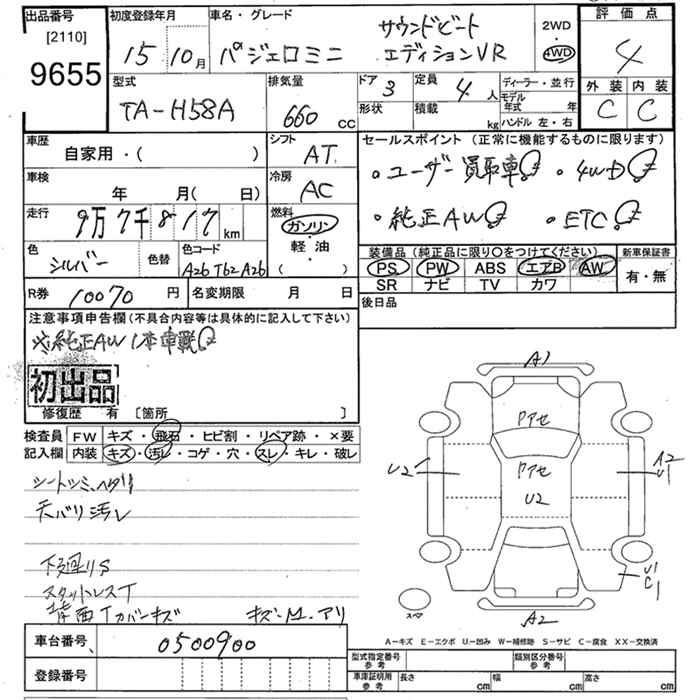 出品番号
[2110]
9655
初度登録年月
15 10月
車名・グレード
パジェロミニ
サウンドビート
エディションVR
2WD
4WD
評価点
4
外装 内装
C C
型式
TA-H58A
排気量
660 CC
ドア 3
形状
定員 4 人
積載 kg
ディーラー・並行
モデル年式 年
ハンドル 左・右
車歴
自家用・( )
車検
年 月( 日)
走行
9万7千817 km
色
シルバー
色替
色コード
A26 T62 A26
シフト
AT
冷房
AC
燃料
ガソリン・
軽・油
( )
セールスポイント (正常に機能するものに限ります)
・ユーザー買取車 ・4WD
・純正AW ・ETC
装備品 (純正品に限り○をつけてください)
PS PW ABS エアB AW
SR ナビ TV カワ
新車保証書
有・無
R券 10070 円
名変期限 月 日
後日品
注意事項申告欄 (不具合内容等は具体的に記入して下さい)
純正AW1本車載
初出品
修復歴 有 [箇所 ]
検査員
記入欄
FW キズ・飛石・ヒビ割・リペア跡・×要
内装 キズ・汚レ・コゲ・穴・スレ・キレ・破レ
シートシミ、ヘタリ
天バリ汚レ
下廻りS
スタットレスT
背面Tカバーキズ
キズ・M・アリ
A1
アセ
アセ
U2
U2
A2
U1
U1
C1
A2
スペア
A-キズ E-エクボ U-凹み W-補修跡 S-サビ C-腐食 XX-交換済
車台番号 0500900
登録番号
型式指定番号
参考
類別区分番号
参考
車庫証明用
参考
長さ cm 幅 cm 高さ cm